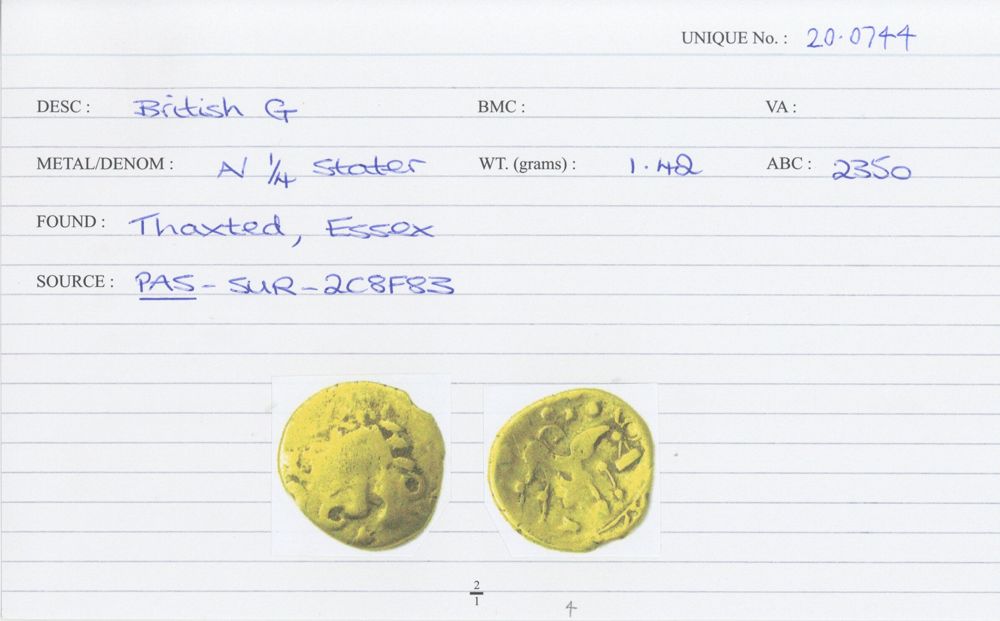 UNIQUE No. : 20.0744
DESC : British G BMC : VA :
METAL/DENOM : N 1/4 Stater WT. (grams) : 1.42 ABC : 2350
FOUND : Thaxted, Essex
SOURCE : PAS - SUR - 2C8F83
2
1
4